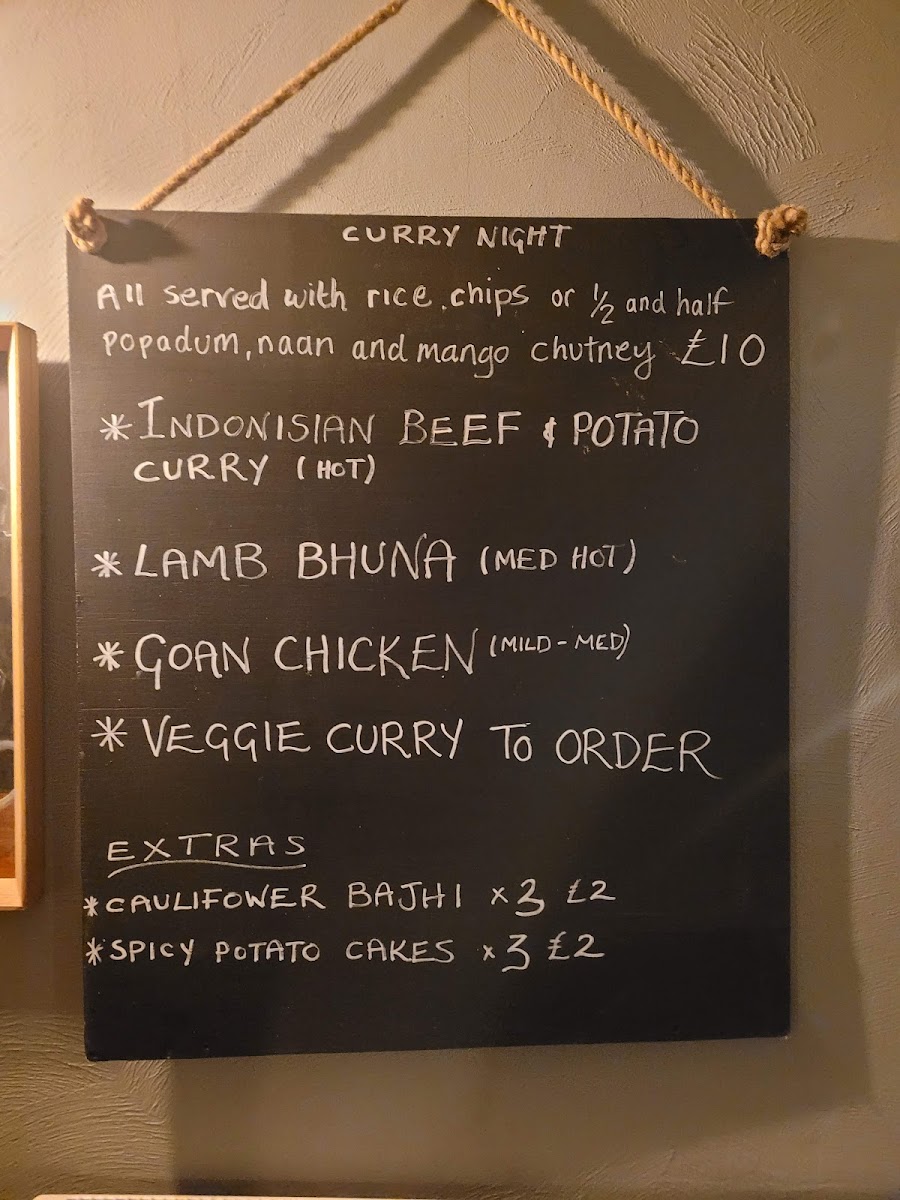 CURRY NIGHT
All served with rice, chips or 1/2 and half
popadum, naan and mango chutney £10
* INDONISIAN BEEF & POTATO
CURRY (HOT)
* LAMB BHUNA (MED HOT)
* GOAN CHICKEN (MILD-MED)
* VEGGIE CURRY TO ORDER
EXTRAS
* CAULIFOWER BAJHI x3 £2
* SPICY POTATO CAKES x3 £2